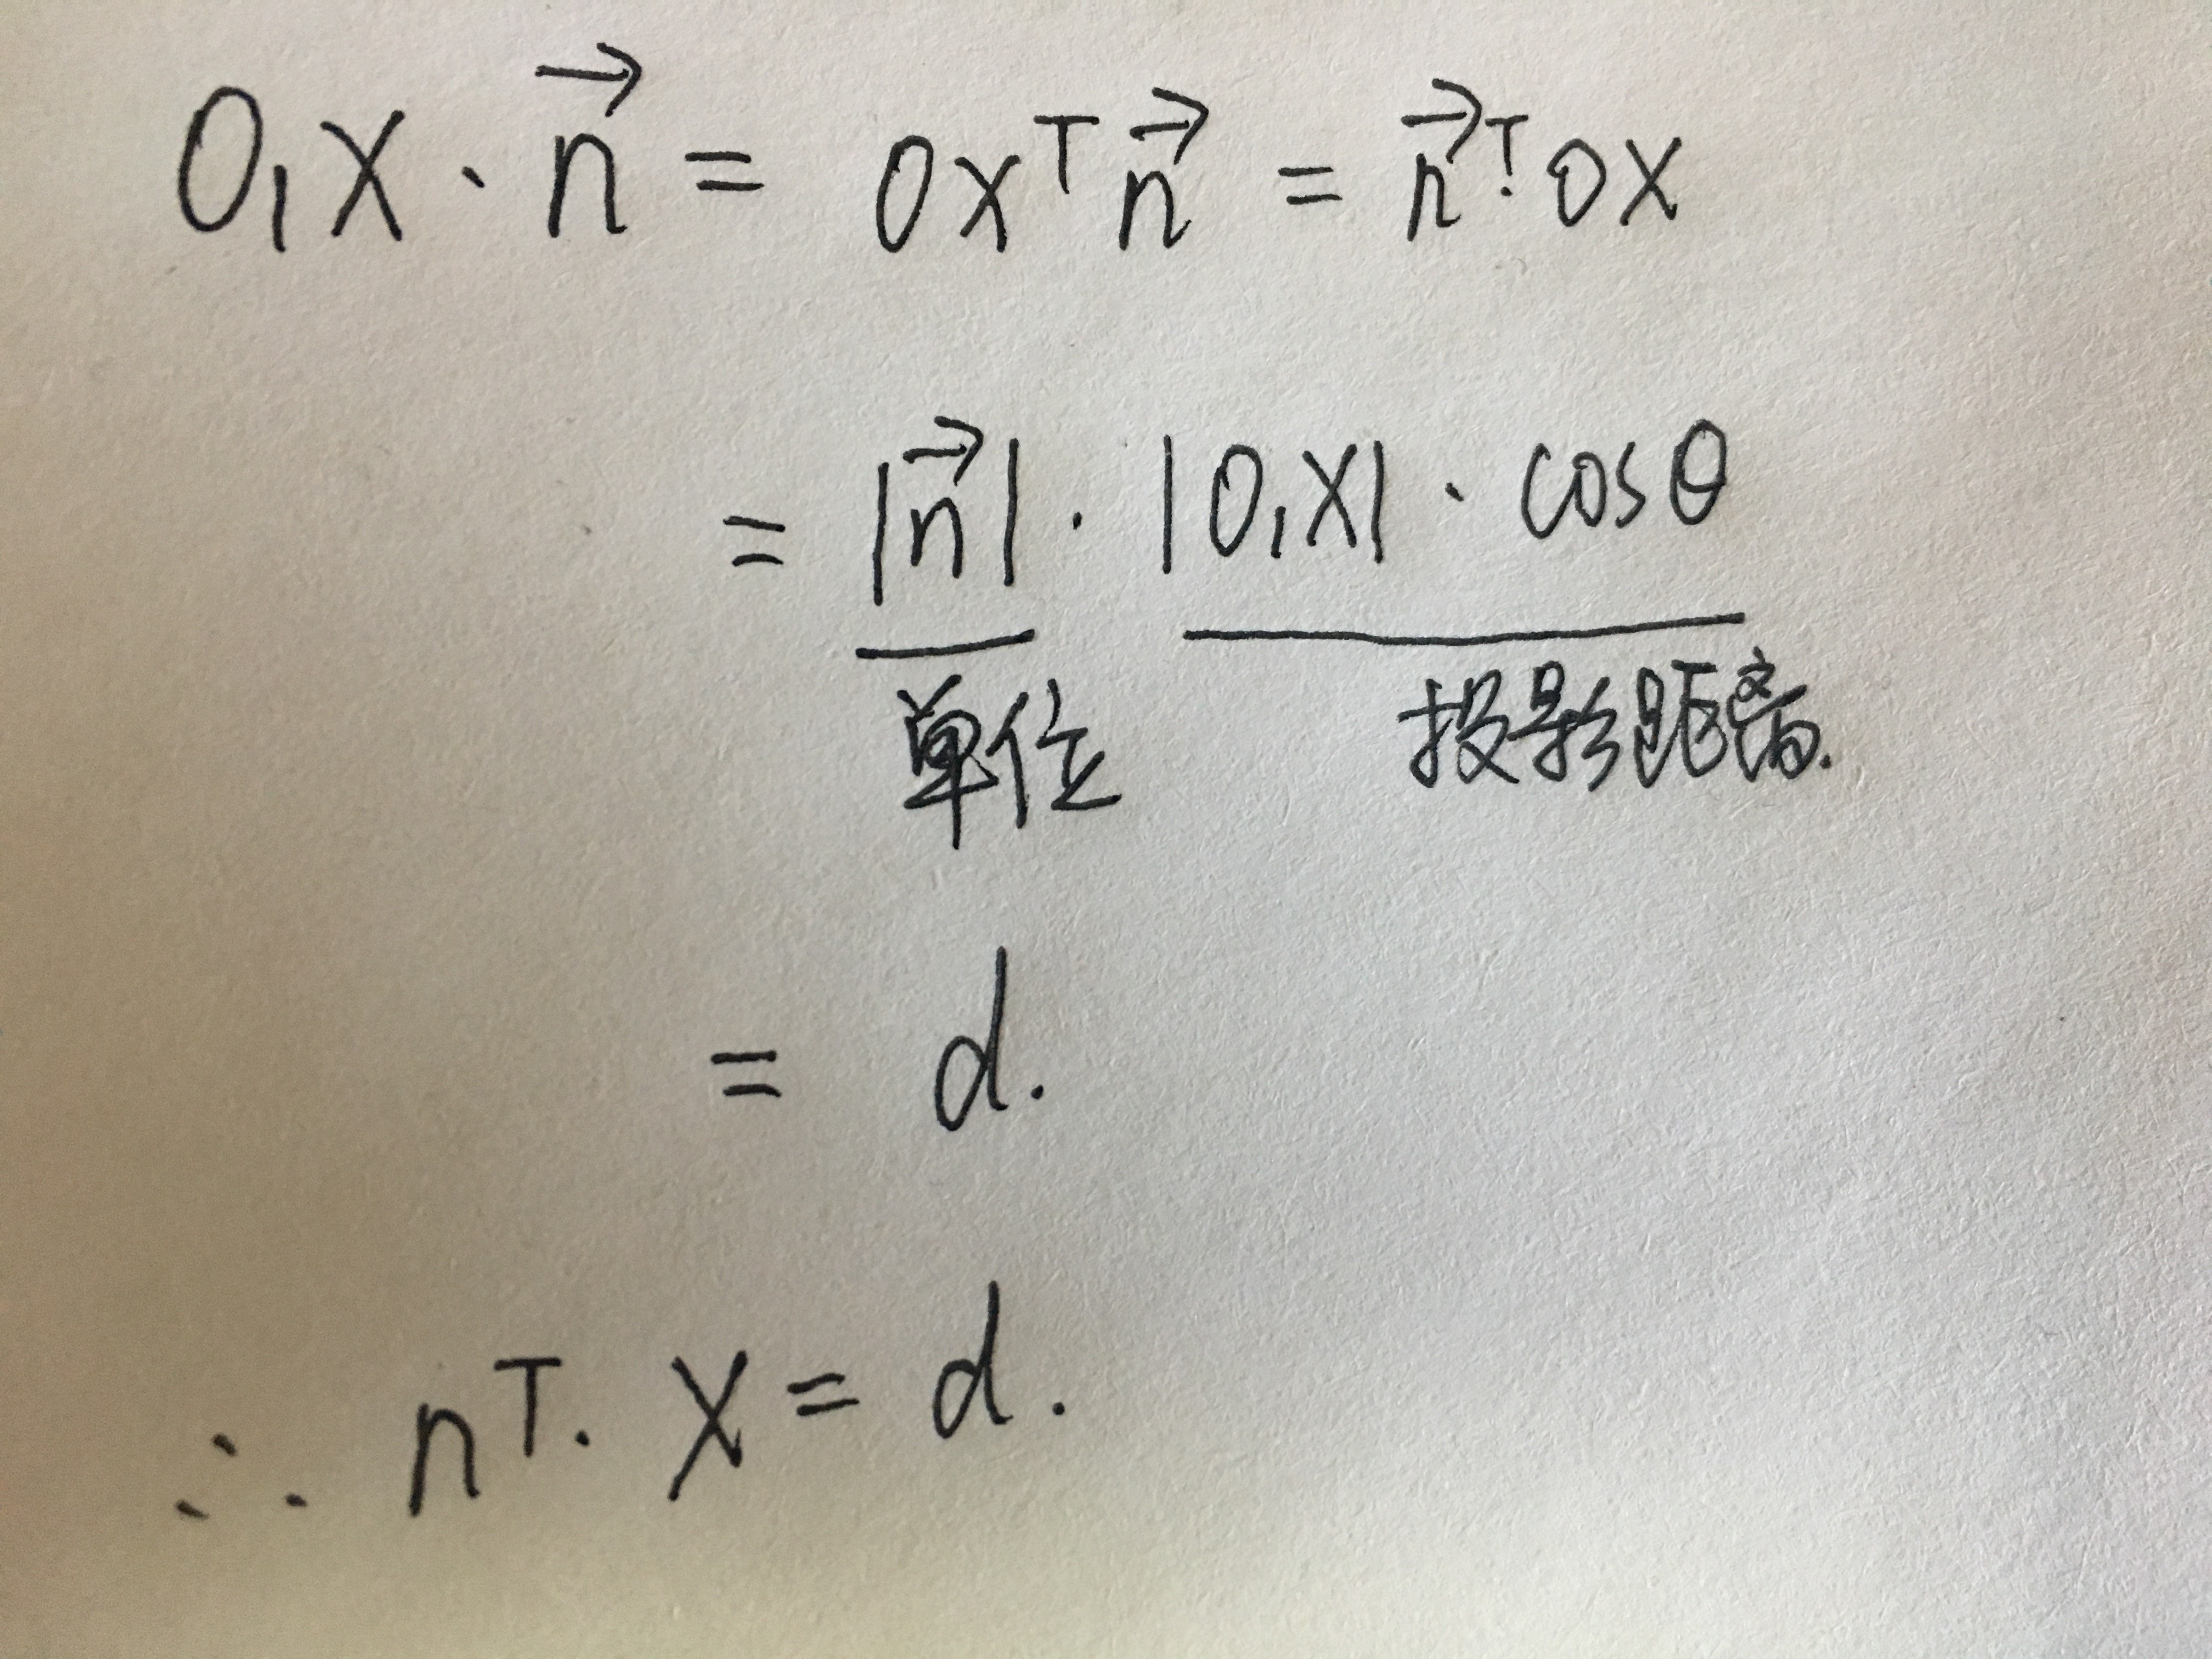 O₁X · n⃗ = OXᵀ n⃗ = n⃗ᵀ · OX
= |n⃗| · |O₁X| · cosθ
单位 投影距离.
= d.
∴ nᵀ · X = d.